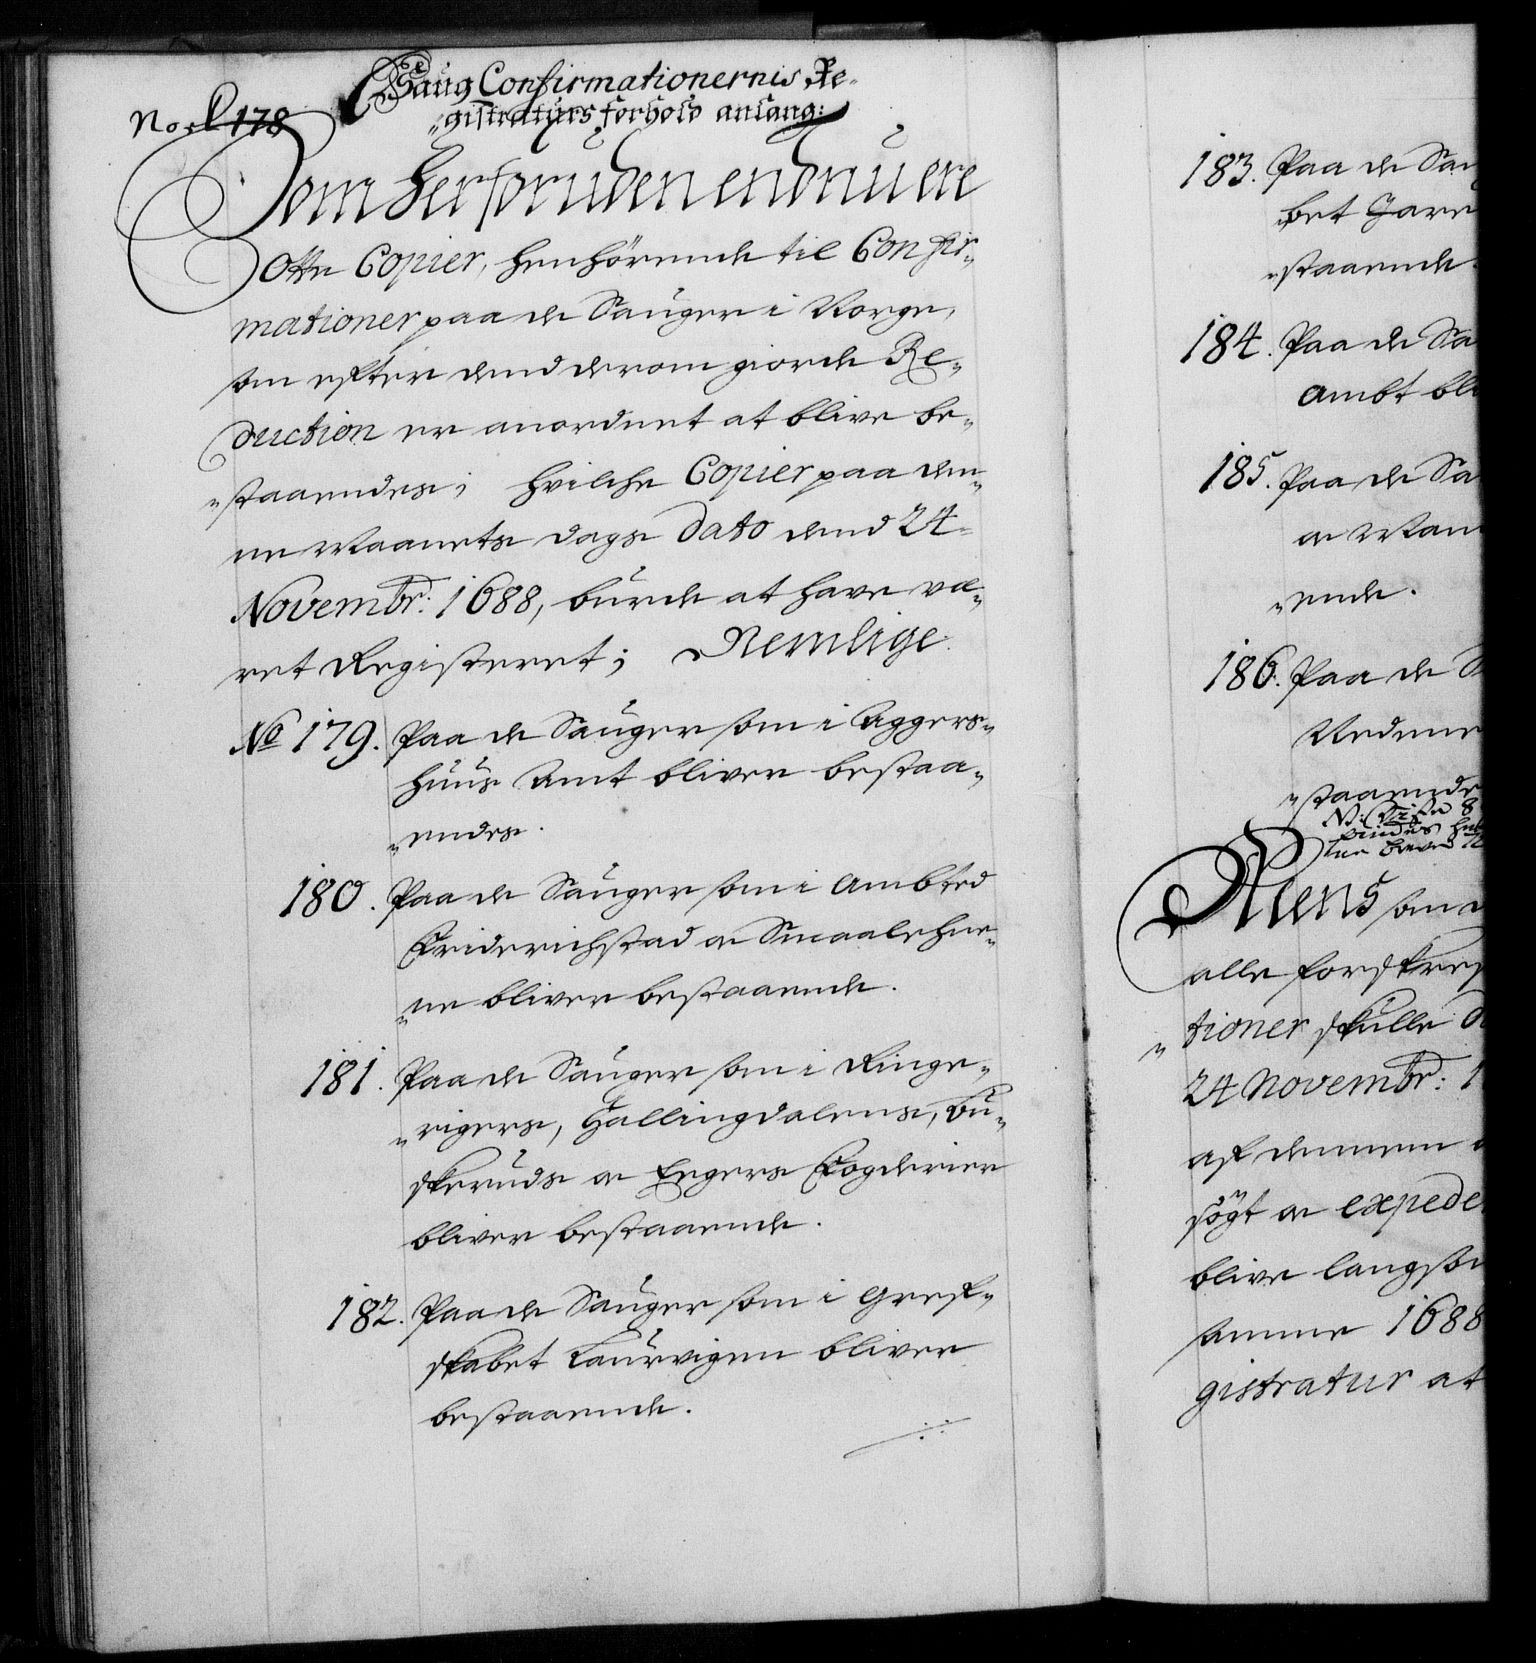 No 178
Saug Confirmationernis Re-
"gistraturs forhold anlang:
Som herforuden endnu ere
Otte Copier, henhörende til Confir-
mationer paa de Sauger i Norge,
som efter dend derom giorde Re-
duction er anordnet at blive be-
"staaendes; hvilche Copier paa den-
ne Maanets dags Dato dend 24
Novembr: 1688, burde at have væ-
ret Registeret; Nemlige
No 179. Paa de Sauger som i Aggers-
huus Amt bliver bestaa-
"endes.
180. Paa de Sauger som i Ambted
Friderichstad og Smaalehne-
"ne bliver bestaaende.
181. Paa de Sauger som i Ringe-
"rigers, Hallingdalens, Bu-
skeruds og Eegers Fogderier
bliver bestaaende.
182. Paa de Sauger som i Gref-
skabet Laurvigen bliver
bestaaende.
183. Paa de Sau
bet Jarl
"staaende.
184. Paa de Sa
Ambt bli
185. Paa de Sa
og Man
"ende.
186. Paa de S
Nedene
"staaende
Mens som
alle forskref
"tioner skulle
24 Novembr: 1
af dennem
sögt og expede
blive langsom
samme 1688
gistratur at